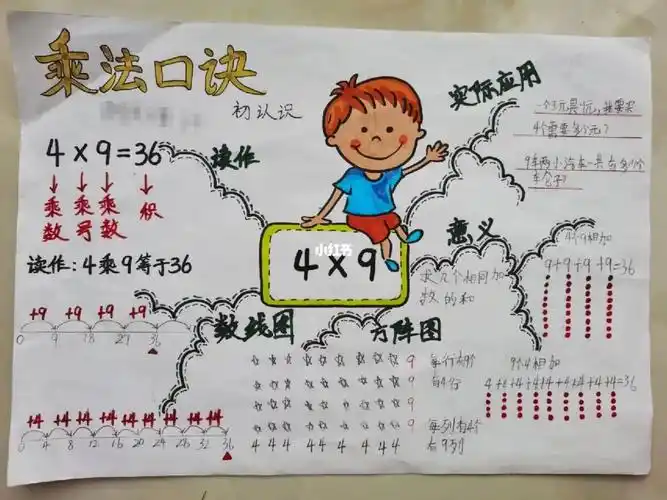 乘法口诀
初认识
4×9=36
↓ ↓ ↓ ↓
乘 乘 乘 积
数 号 数
读作:4乘9等于36
读作
4×9
小红书
实际应用
4个需要多少元?
意义
求几个相同加
数的和
4个9相加
9+9+9+9=36
9个4相加
4+4+4+4+4+4+4+4+4=36
数线图
+9 +9 +9 +9
0 9 18 29 36
+4 +4 +4 +4 +4 +4 +4 +4 +4
0 4 8 12 16 20 24 28 32 36
方阵图
9
9
9
9
4 4 4 4 4 4 4 4 4
每行有9个
有4行
每列有4个
有9列